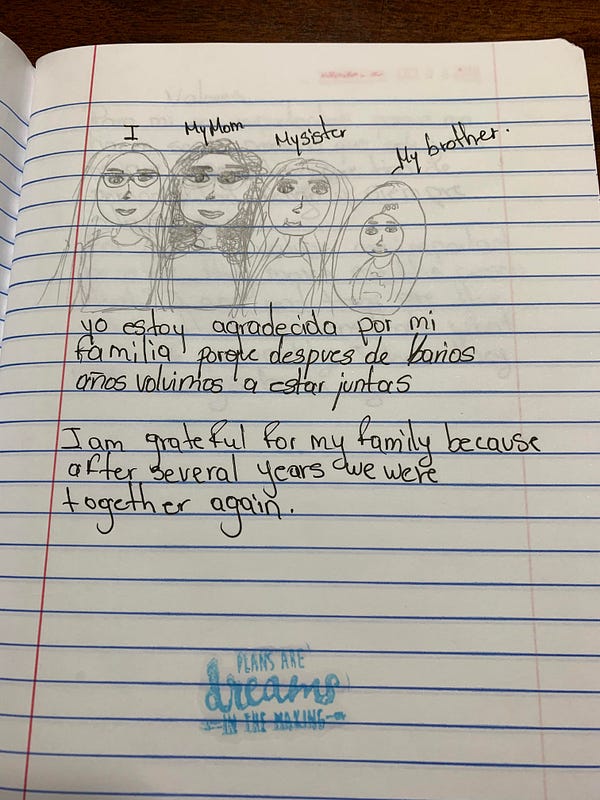 I
My Mom
My sister
My brother.
yo estoy agradecida por mi
familia porque despues de barios
años volvimos a estar juntas
I am grateful for my family because
after several years we were
together again.
PLANS ARE
dreams
IN THE MAKING